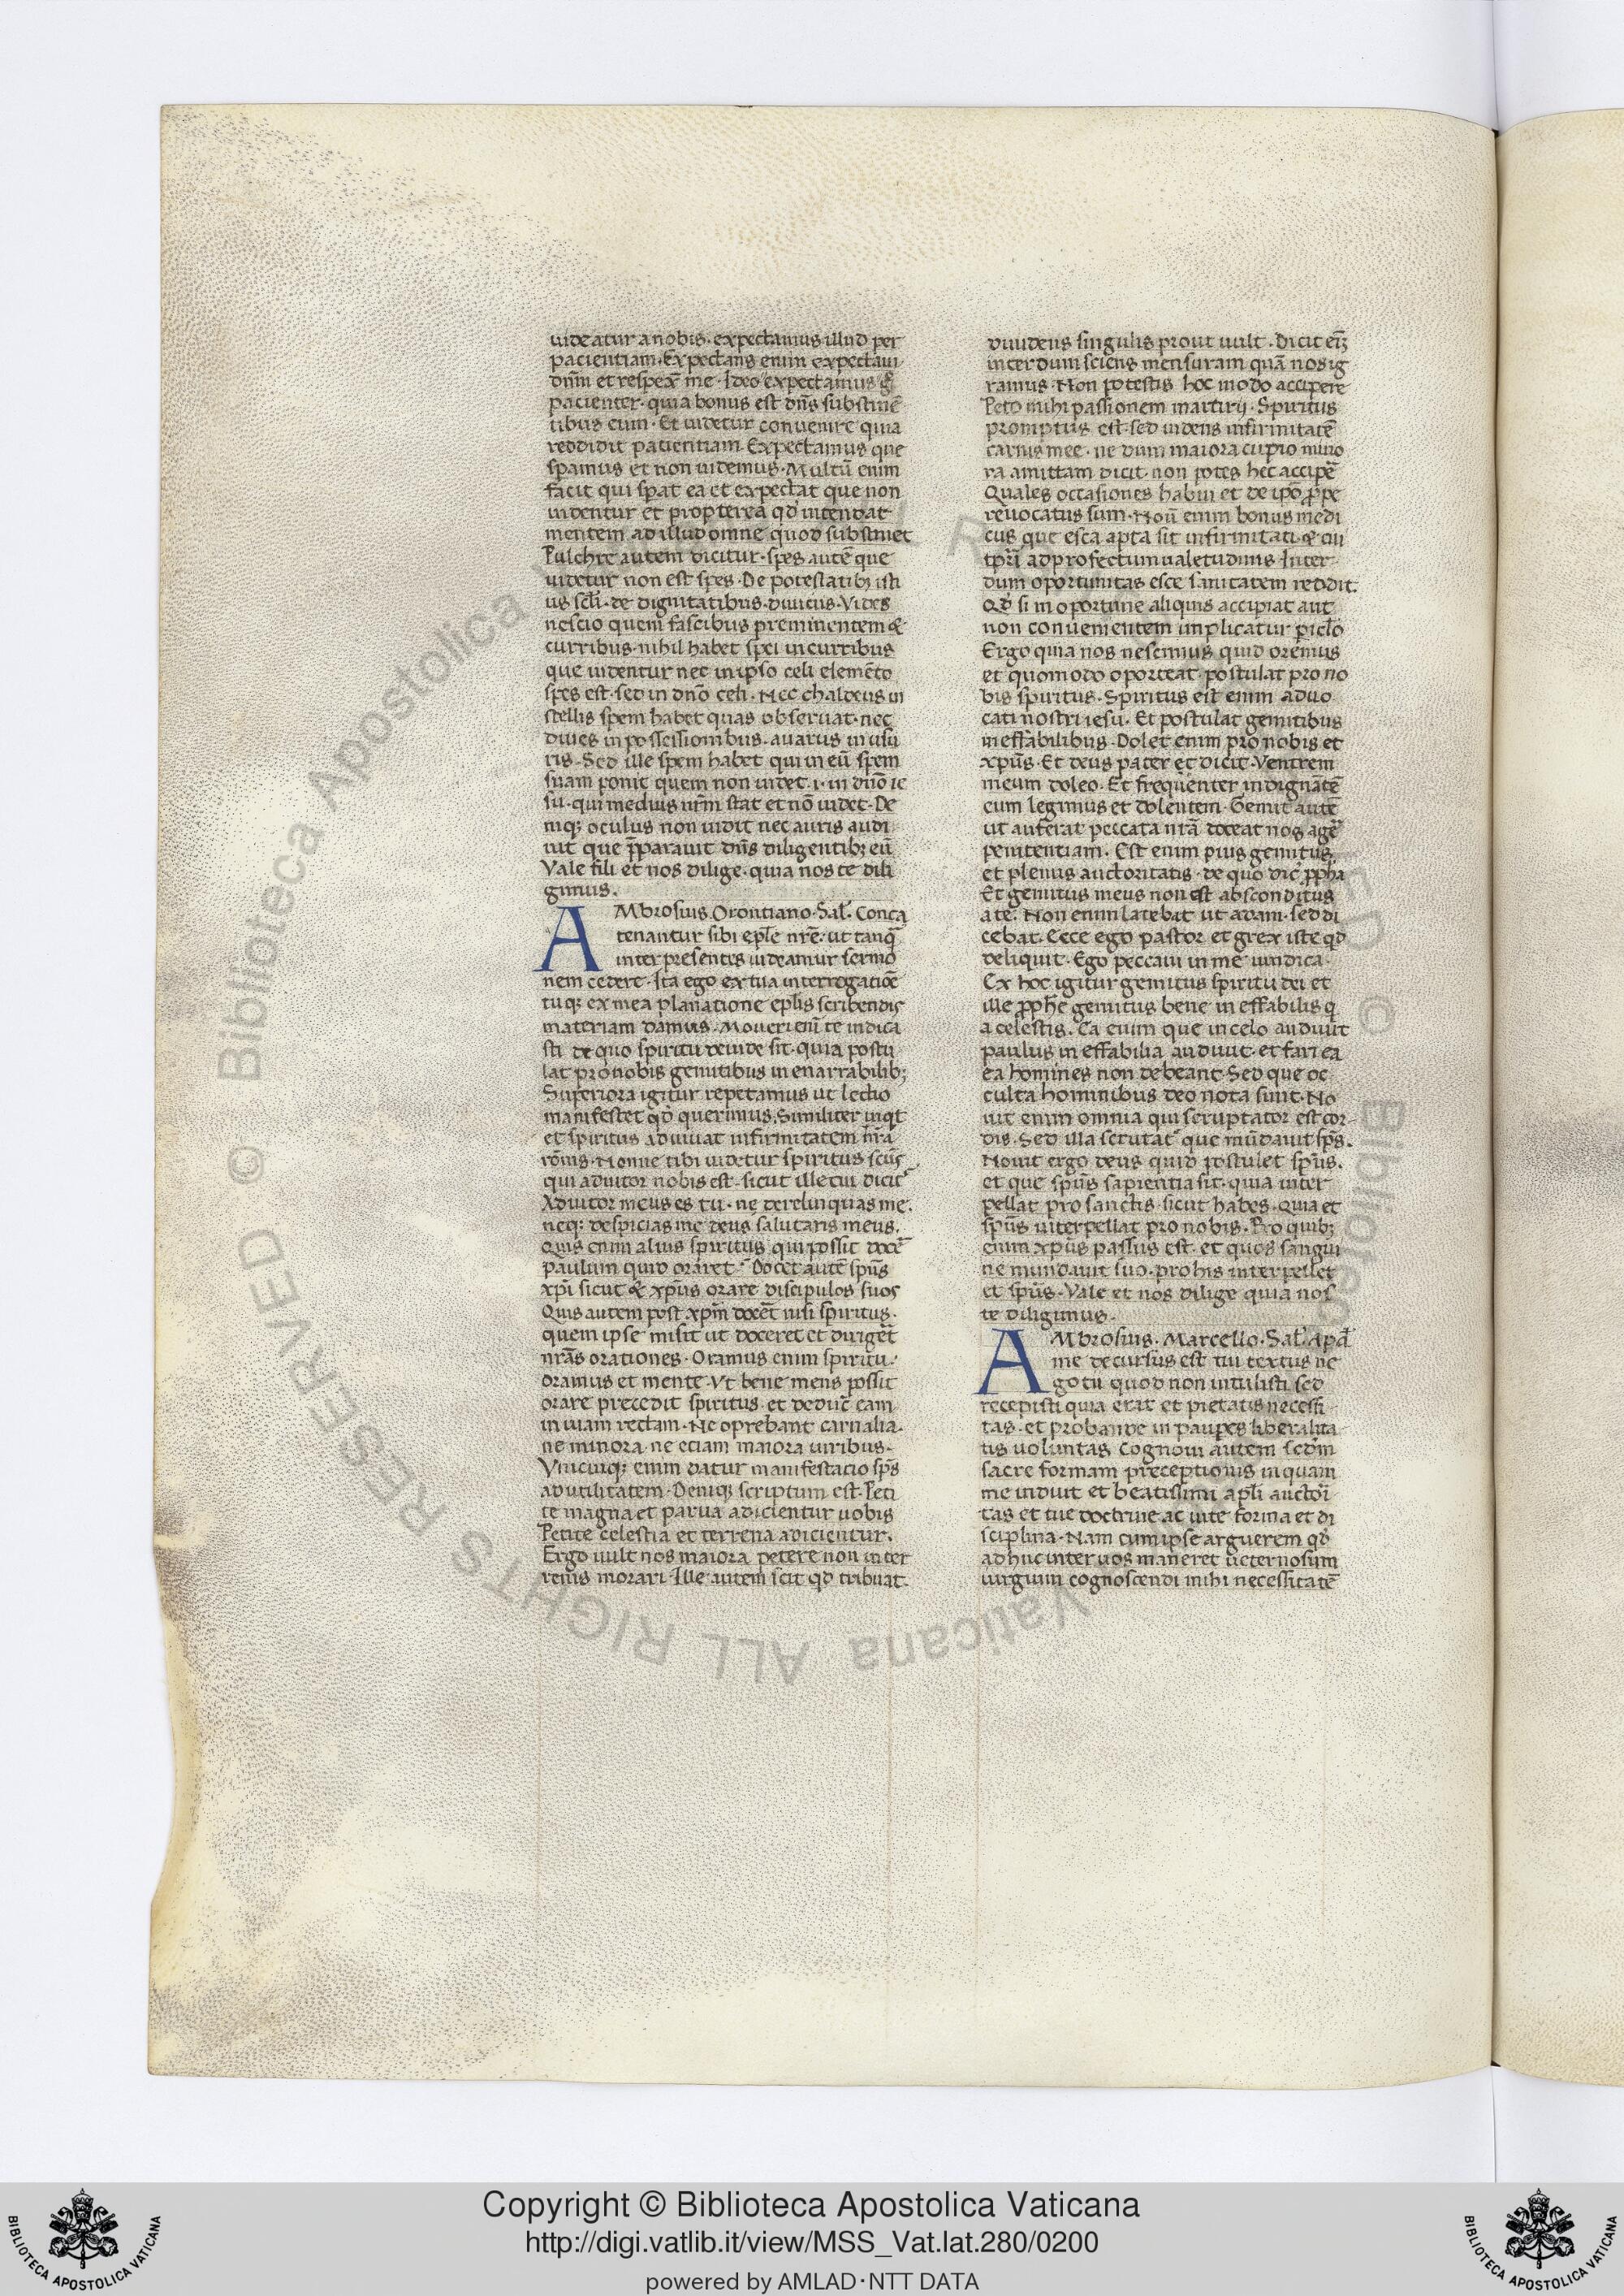 uideatur a nobis. expectamus illud per
pacientiam. Expectans enim expectaui
dn̄m et respex̄ me. Ideo expectamus
pacienter. quia bonus est dn̄s substinē
tibus eum. Et uidetur conuenire quia
reddidit patientiam. Expectamus que
sꝑamus et non uidemus. Multū enim
facit qui sꝑat ea et expectat que non
uidentur et propterea qd̄ intendat
mentem ad illud omne quod substinet
Pulchre autem dicitur. spes autē que
uidetur non est spes. De potestatibꝫ isti
us sc̄li. de dignitatibus. diuiciis. Vides
nescio quem fascibus preminentem &
curribus. nihil habet spei in curribus
que uidentur nec in ipso celi elemēto
spes est. sed in dn̄o celi. Nec chaldeus in
stellis spem habet quas obseruat. nec
diues in possessionibus. auarus in usu
ris. Sed ille spem habet qui in eū spem
suam ponit quem non uidet .i. in dn̄o ie
su. qui medius nr̄m stat et nō uidet. De
niqꝫ oculus non uidit nec auris audi
uit que p̄parauit dn̄s diligentibꝫ eū
Vale fili et nos dilige. quia nos te dili
gimus.
AMbrosius Orontiano. Sal̄. Conca
tenantur sibi epl̄e nr̄e. ut tanq̄
inter presentes uideamur sermo
nem cedere. Ita ego ex tua interrogatiōe
tuqꝫ ex mea planatione epl̄is scribendis
materiam damus. Moueri eni te indica
sti de quo spiritu deinde sit. quia postu
lat pro nobis gemitibus inenarrabilibꝫ
Superiora igitur repetamus ut lectio
manifestet qd̄ querimus. Similiter inqt
et spiritus adiuuat infirmitatem nr̄a
rōnis. Nonne tibi uidetur spiritus scūs
qui adiutor nobis est. sicut ille cui dicit̄
Adiutor meus es tu. ne derelinquas me.
neqꝫ despicias me deus salutaris meus.
Quis enim alius spiritus qui possit docē
paulum quid oraret. Docet autē spūs
xp̄i sicut & xp̄us orare discipulos suos
Quis autem post xp̄m docēt nisi spiritus.
quem ipse misit ut doceret et dirigēt
nrās orationes. Oramus enim spiritu.
oramus et mente. Vt bene mens possit
orare precedit spiritus et deduc̄ eam
in uiam rectam. Ne oprebant carnalia.
ne minora. ne eciam maiora uiribus.
Vnicuiqꝫ enim datur manifestacio sp̄s
ad utilitatem. Deniqꝫ scriptum est. Peti
te magna et parua adicientur uobis
Petite celestia et terrena adicientur.
Ergo uult nos maiora petere non in ter
renis morari. Ille autem scit qd̄ tribuat.
diuidens singulis prout uult. Dicit eīꝫ
interdum sciens mensuram quā nos ig
ramus. Non potestis hoc modo accipere
Peto mihi passionem martirij. Spiritus
promptus est. sed uidens infirmitatē
carnis mee. ne dum maiora cupio mino
ra amittam dicit non potes hec accipē
Quales occasiones habui et de ipō ꝓpe
reuocatus sum. Nouī enim bonus medi
cus que esca apta sit infirmitati. & cui
tpr̄i ad profectum ualetudinis. Inter
dum oportunitas esce sanitatem reddit.
Qd̄ si inoportune aliquis accipiat aut
non conuenientem implicatur picl̄o
Ergo quia nos nescimus quid oremus
et quomodo oporteat. postulat pro no
bis spiritus. Spiritus est enim aduo
cati nostri iesu. Et postulat gemitibus
ineffabilibus. Dolet enim pro nobis et
xp̄us. Et deus pater et dicit. Ventrem
meum doleo. Et frequenter indignātē
eum legimus et dolentem. Gemit autē
ut auferat peccata nr̄a doceat nos agē
penitentiam. Est enim pius gemitus
et plenus auctoritatis. de quo dic̄ ꝓpha
Et gemitus meus non est absconditus
a te. Non enim latebat ut adam. sed di
cebat. Ecce ego pastor et grex iste qd̄
deliquit. Ego peccaui in me uindica.
Ex hoc igitur gemitus spiritu dei et
ille ꝓphē gemitus bene ineffabilis q
a celestis. Ea enim que in celo audiuit
paulus ineffabilia audiuit. et fari ea
ea homines non debeant. Sed que oc
culta hominibus deo nota sunt. No
uit enim omnia qui scruptator est cor
dis. Sed illa scrutat̄ que mūdauit sp̄s.
Nouit ergo deus quid postulet spūs.
et que spūs sapientia sit. quia inter
pellat pro sanctis. sicut habes. Quia et
spūs interpellat pro nobis. Pro quibꝫ
enim xp̄us passus est. et quos sangui
ne mundauit suo. pro his interpellet
et spūs. Vale et nos dilige quia nos
te diligimus.
AMbrosius. Marcello. Sal̄. Apd̄
me decursus est tui textus ne
gotii quod non intulisti sed
recepisti quia erat et pietatis necessi
tas. et probande in pauꝑes liberalita
tis uoluntas. Cognoui autem scdm̄
sacre formam preceptionis in quam
me induit et beatissimi apl̄i auctori
tas et tue doctrine ac uite forma et di
sciplina. Nam cum ipse arguerem qd̄
adhuc inter uos maneret ueternosum
iurgium cognoscendi mihi necessitatē
Copyright © Biblioteca Apostolica Vaticana
http://digi.vatlib.it/view/MSS_Vat.lat.280/0200
powered by AMLAD·NTT DATA